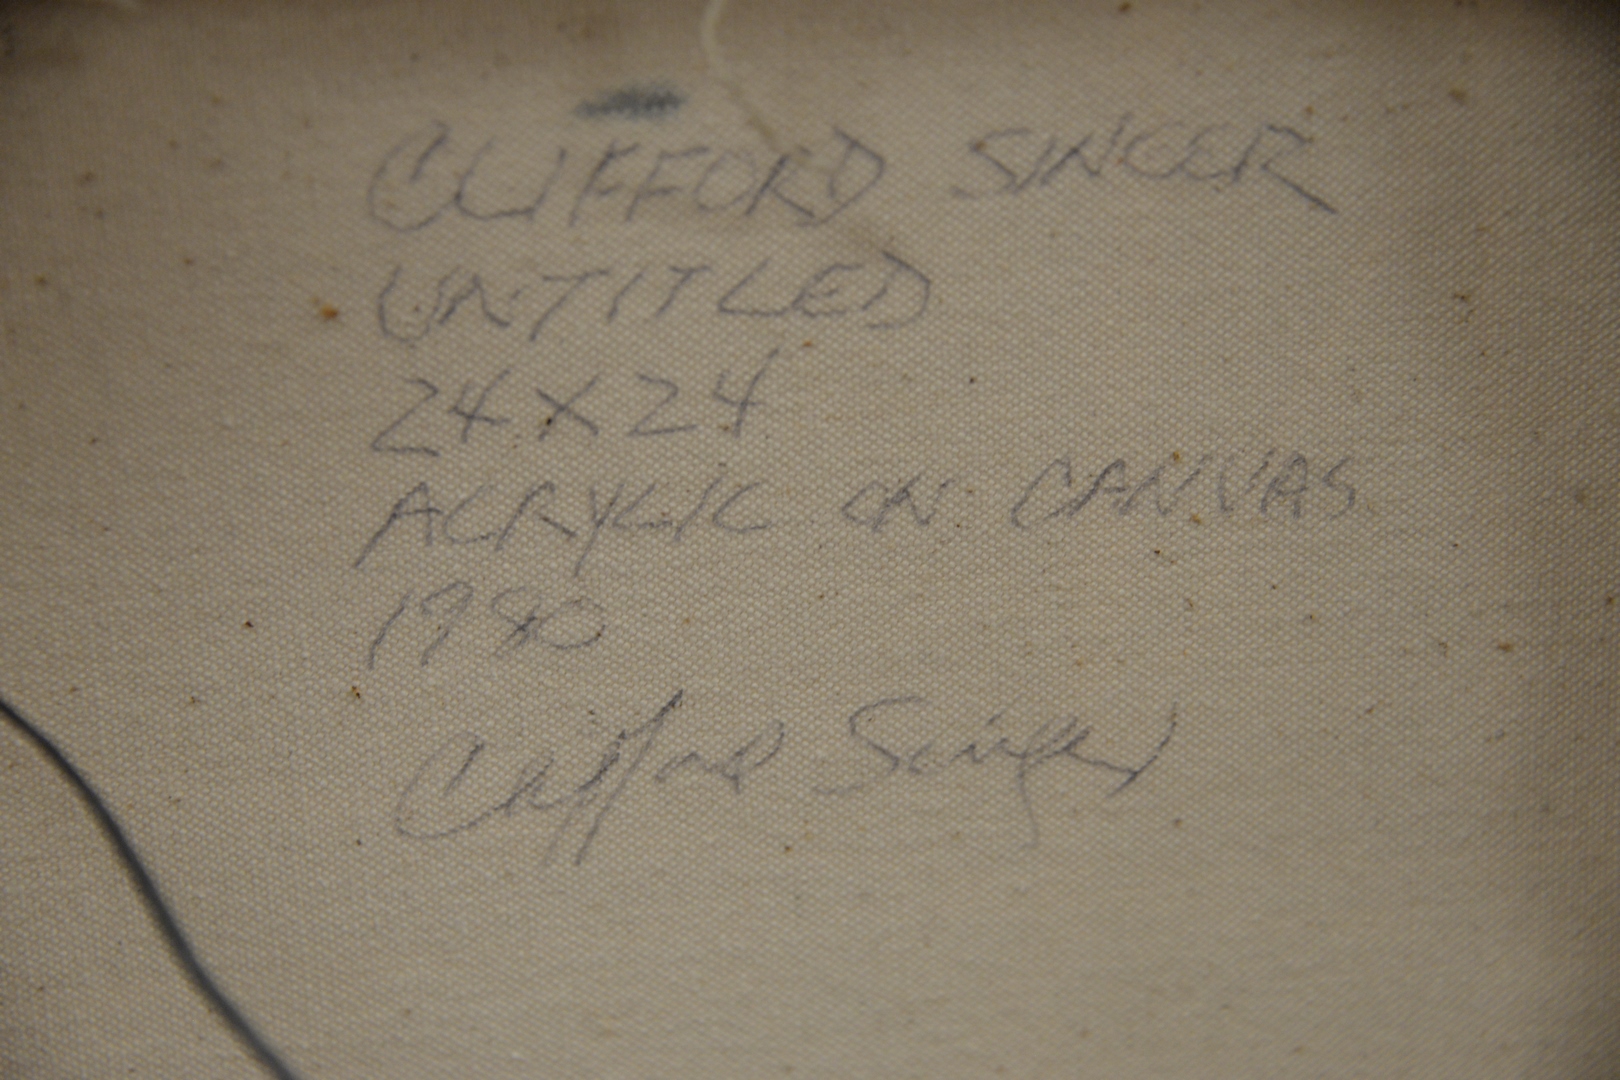 CLIFFORD SINGER
UNTITLED
24 X 24
ACRYLIC ON CANVAS
1980
Clifford Singer